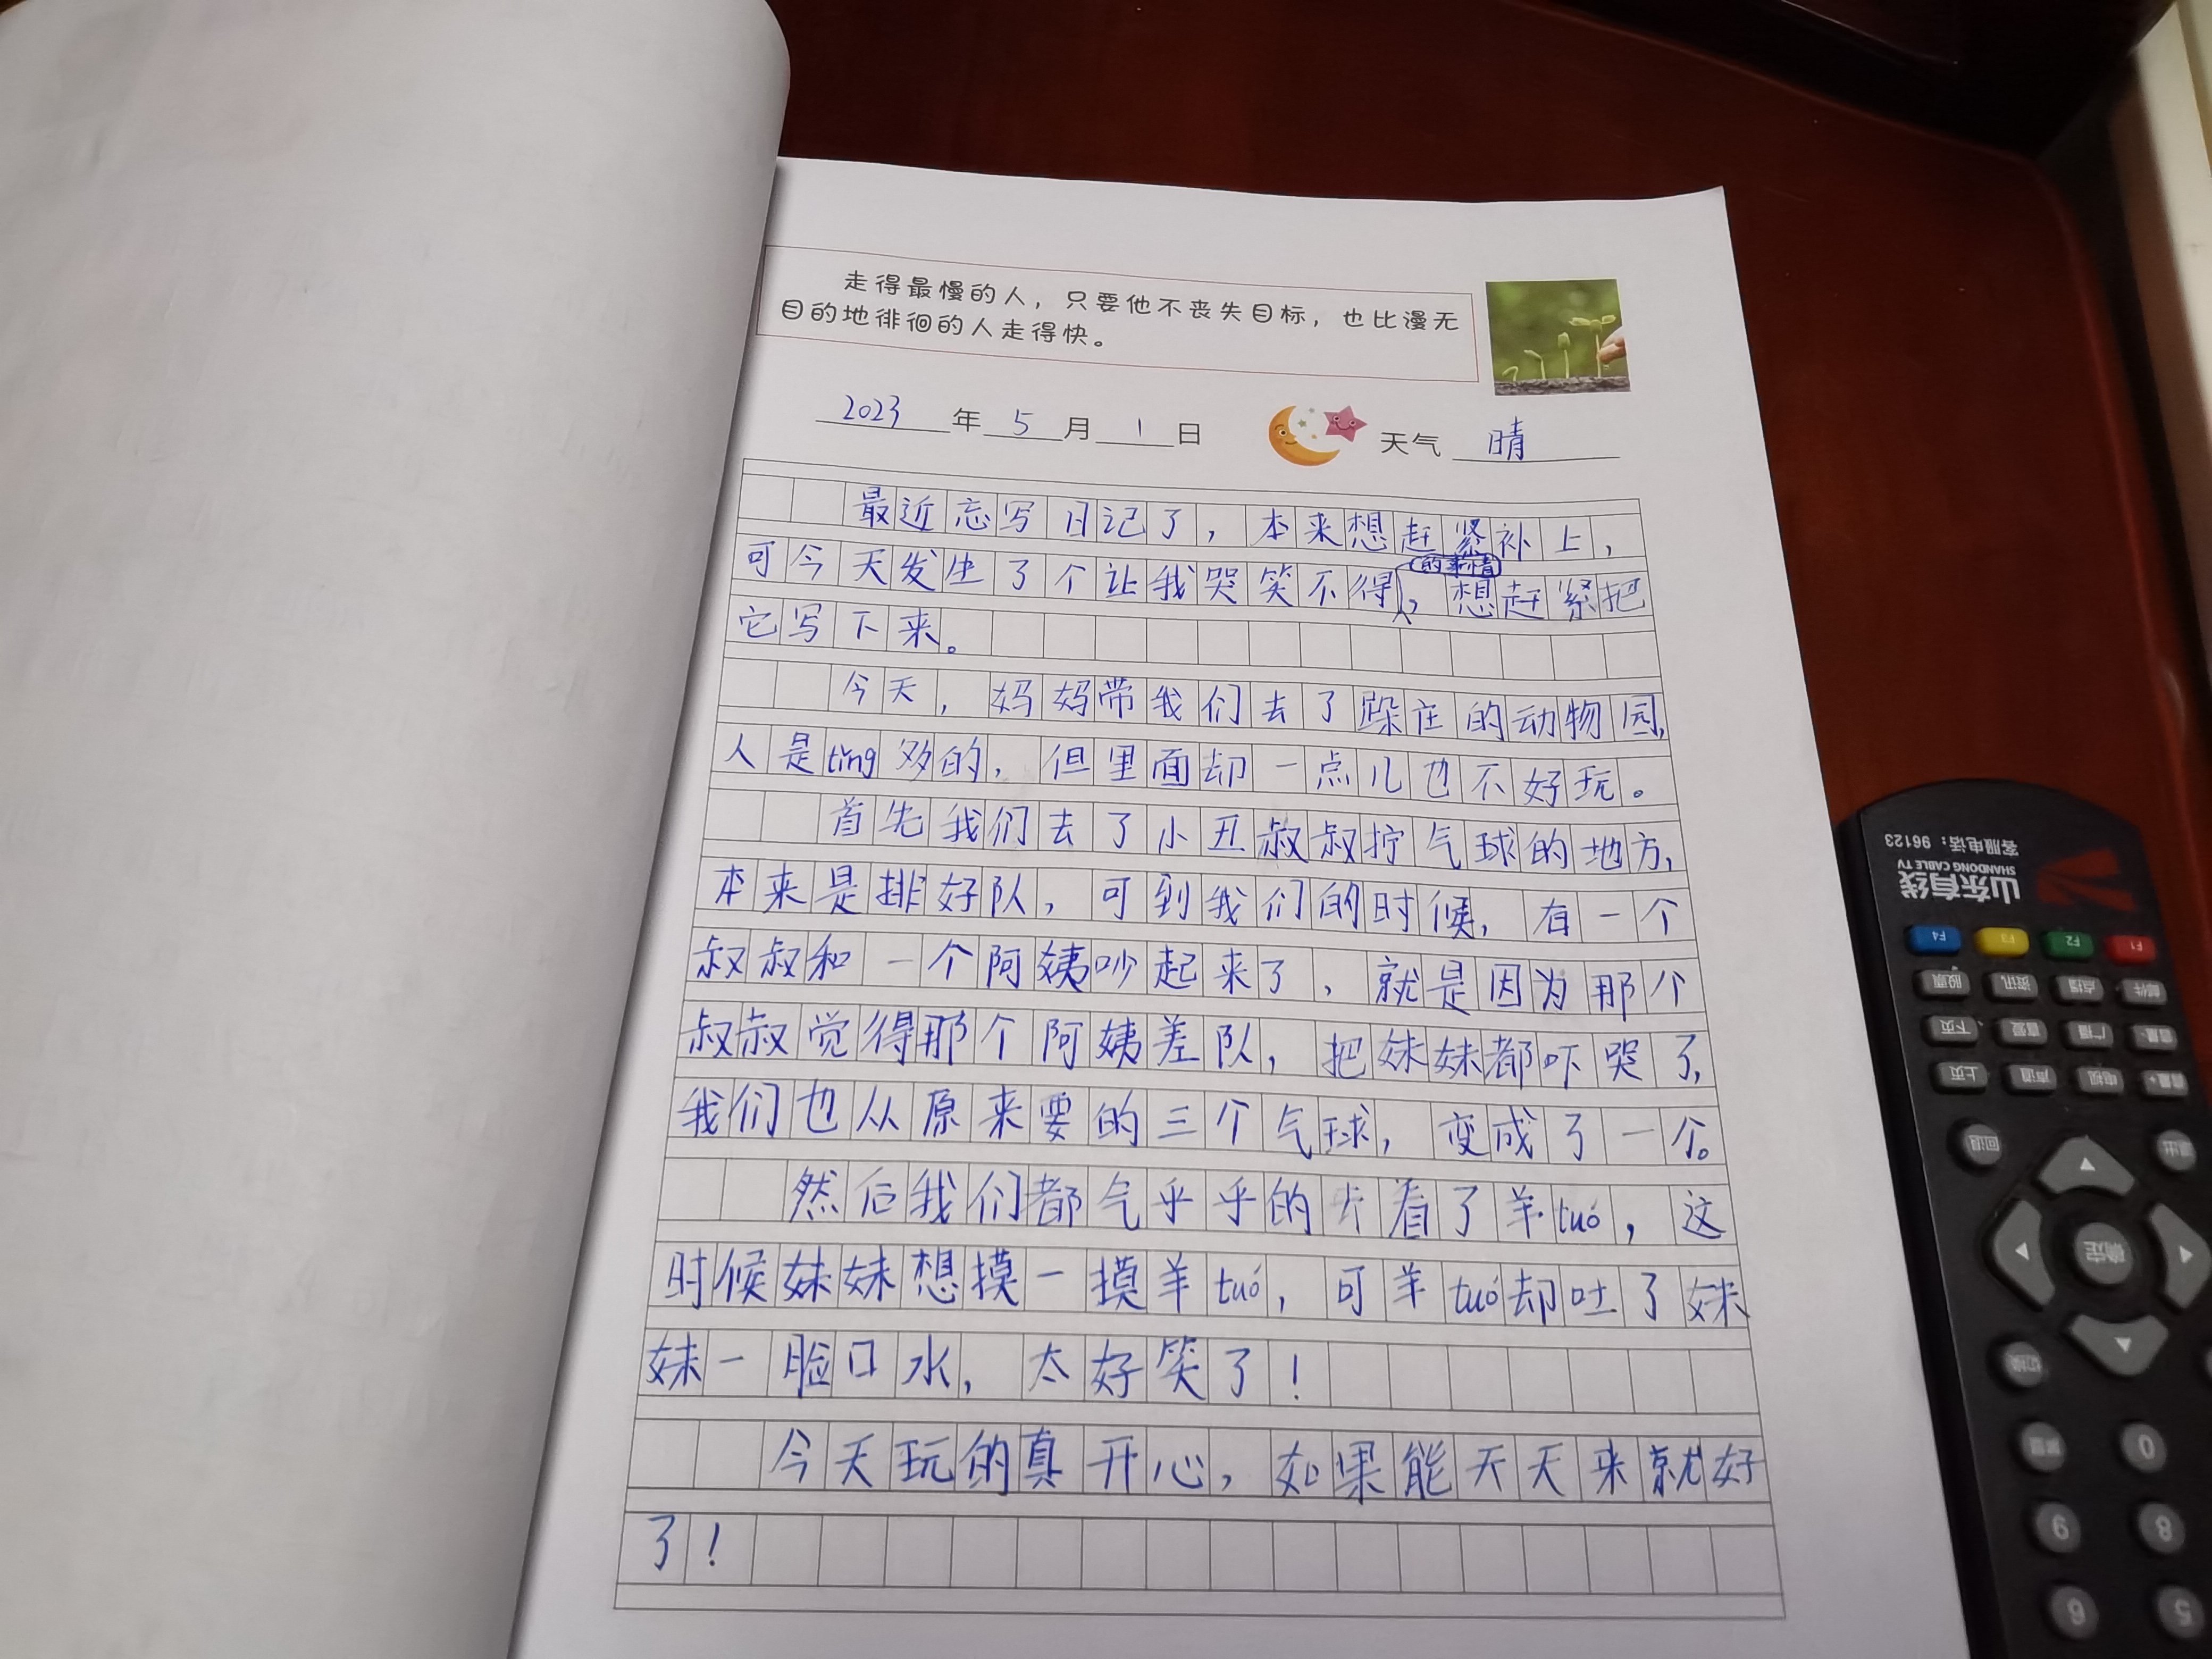 走得最慢的人，只要他不丧失目标，也比漫无
目的地徘徊的人走得快。
2023年5月1日 天气 晴
最近忘写日记了，本来想赶紧补上，
可今天发生了个让我哭笑不得的事情，想赶紧把
它写下来。
今天，妈妈带我们去了跺庄的动物园，
人是tǐng多的，但里面却一点儿也不好玩。
首先我们去了小丑叔叔拧气球的地方，
本来是排好队，可到我们的时候，有一个
叔叔和一个阿姨吵起来了，就是因为那个
叔叔觉得那个阿姨差队，把妹妹都吓哭了，
我们也从原来要的三个气球，变成了一个。
然后我们都气乎乎的去看了羊tuó，这
时候妹妹想摸一摸羊tuó，可羊tuó却吐了妹
妹一脸口水，太好笑了！
今天玩的真开心，如果能天天来就好
了！
山东有线
SHANDONG CABLE TV
客服电话：96123
F1 F2 F3 F4
邮件 点播 资讯 股票
音量- 广播 直爱 下页
音量+ 电视 声道 上页
退出 回退
确定
切换
0
8 9
5 6